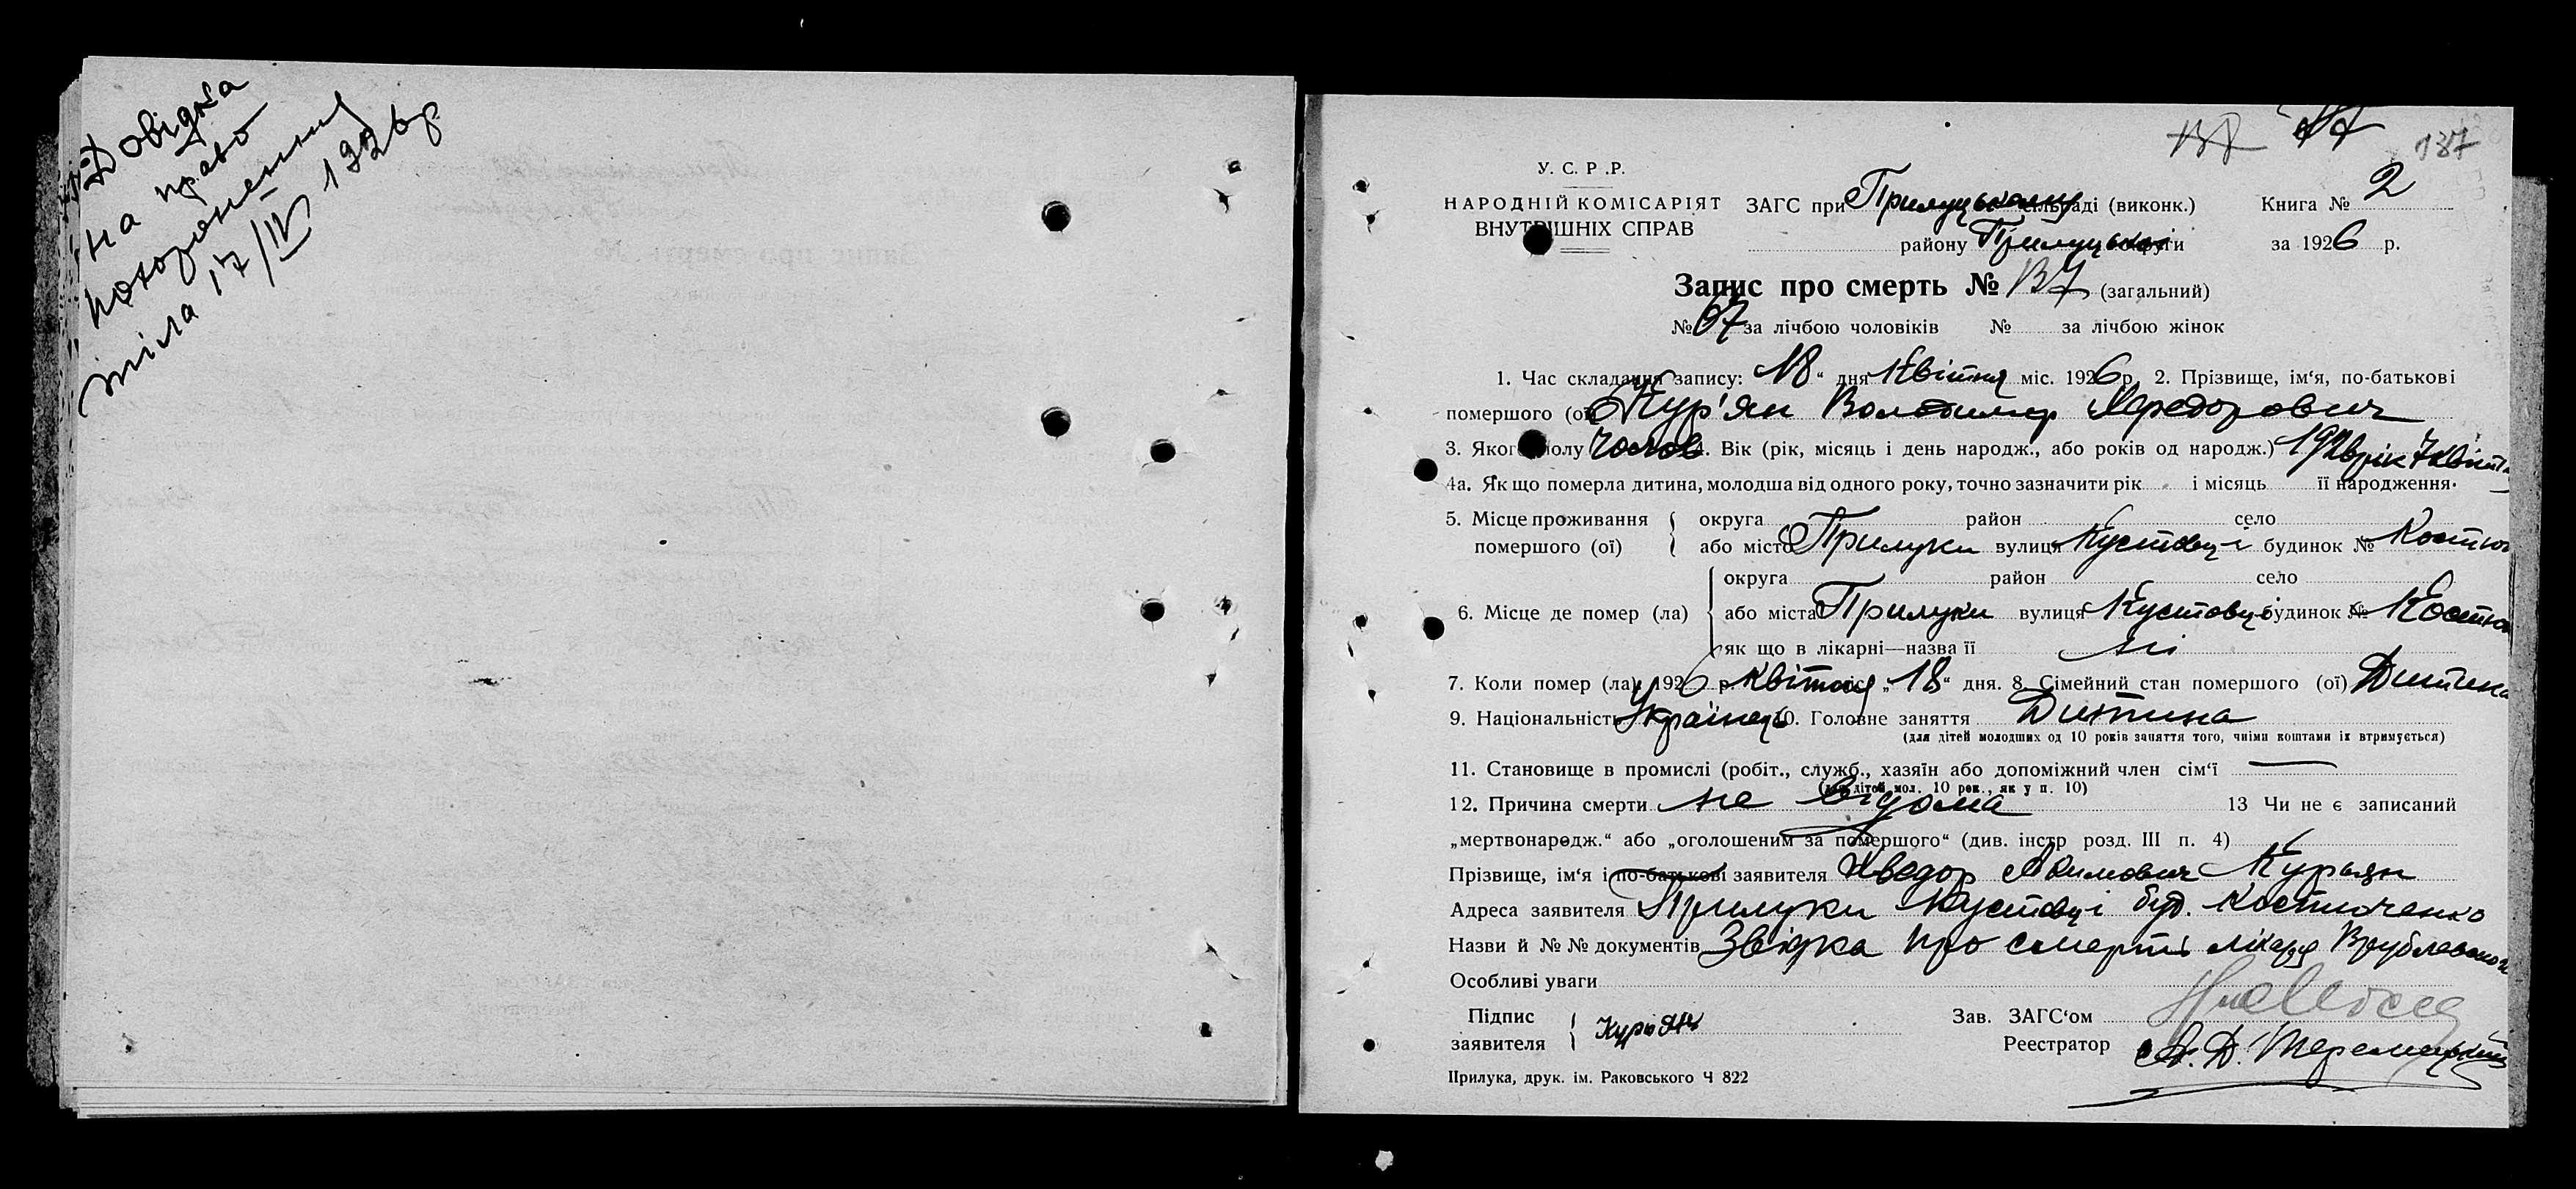 Довідка
на право
похоронення
тіла 17/IV 1926р
137
137
У. С. Р .Р.
НАРОДНІЙ КОМІСАРІЯТ
ВНУТРІШНІХ СПРАВ
ЗАГС при Прилуцькому сільраді (виконк.) Книга № 2
району Прилуцької округи за 1926 р.
Запис про смерть № 137 (загальний)
№ 67 за лічбою чоловіків № за лічбою жінок
1. Час складання запису: „18“ дня Квітня міс. 1926 р. 2. Прізвище, ім‘я, по-батькові
помершого (ої) Кур'ян Володимир
3. Якого полу Чолов 4. Вік (рік, місяць і день народж., або років од народж.) 1926 рік 7 Квітн
4а. Як що померла дитина, молодша від одного року, точно зазначити рік і місяць її народження.
5. Місце проживання помершого (ої) округа район село
або місто Прилуки вулиця Кустовці будинок № Костю
6. Місце де помер (ла) округа район село
або міста Прилуки вулиця Кустовці будинок № Костю
як що в лікарні—назва її ні
7. Коли помер (ла) 1926 р. Квітня „18“ дня. 8. Сімейний стан помершого (ої) Дитина
9. Національність Українець 10. Головне заняття Дитина
(для дітей молодших од 10 років заняття того, чиїми коштами їх втримується)
11. Становище в промислі (робіт., служб., хазяїн або допоміжний член сім‘ї —
(для дітей мол. 10 рок., як у п. 10)
12. Причина смерти не відома 13 Чи не є записаний
„мертвонародж.“ або „оголошеним за помершого“ (див. інстр розд. III п. 4)
Прізвище, ім‘я і по-батькові заявителя Хведор Якимович Курьян
Адреса заявителя Прилуки Кустовці буд. Костюченко
Назви й № № документів Звідка про смерть лікаря
Особливі уваги
Підпис заявителя Курьян
Зав. ЗАГС‘ом
Реестратор
Прилука, друк. ім. Раковського Ч 822